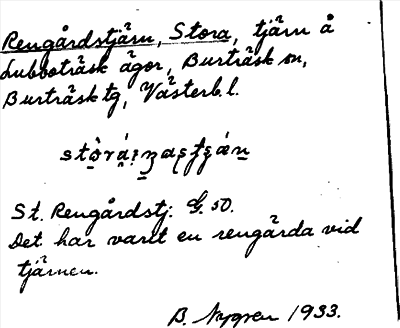 Rengårdstjärn, Stora, tjärn å
Lubboträsk ägor, Burträsk sn,
Burträsk tg, Västerb. l.
St. Rengårdstj. G. 50.
Det har varit en rengärda vid
tjärnen.
B. Nygren 1933.